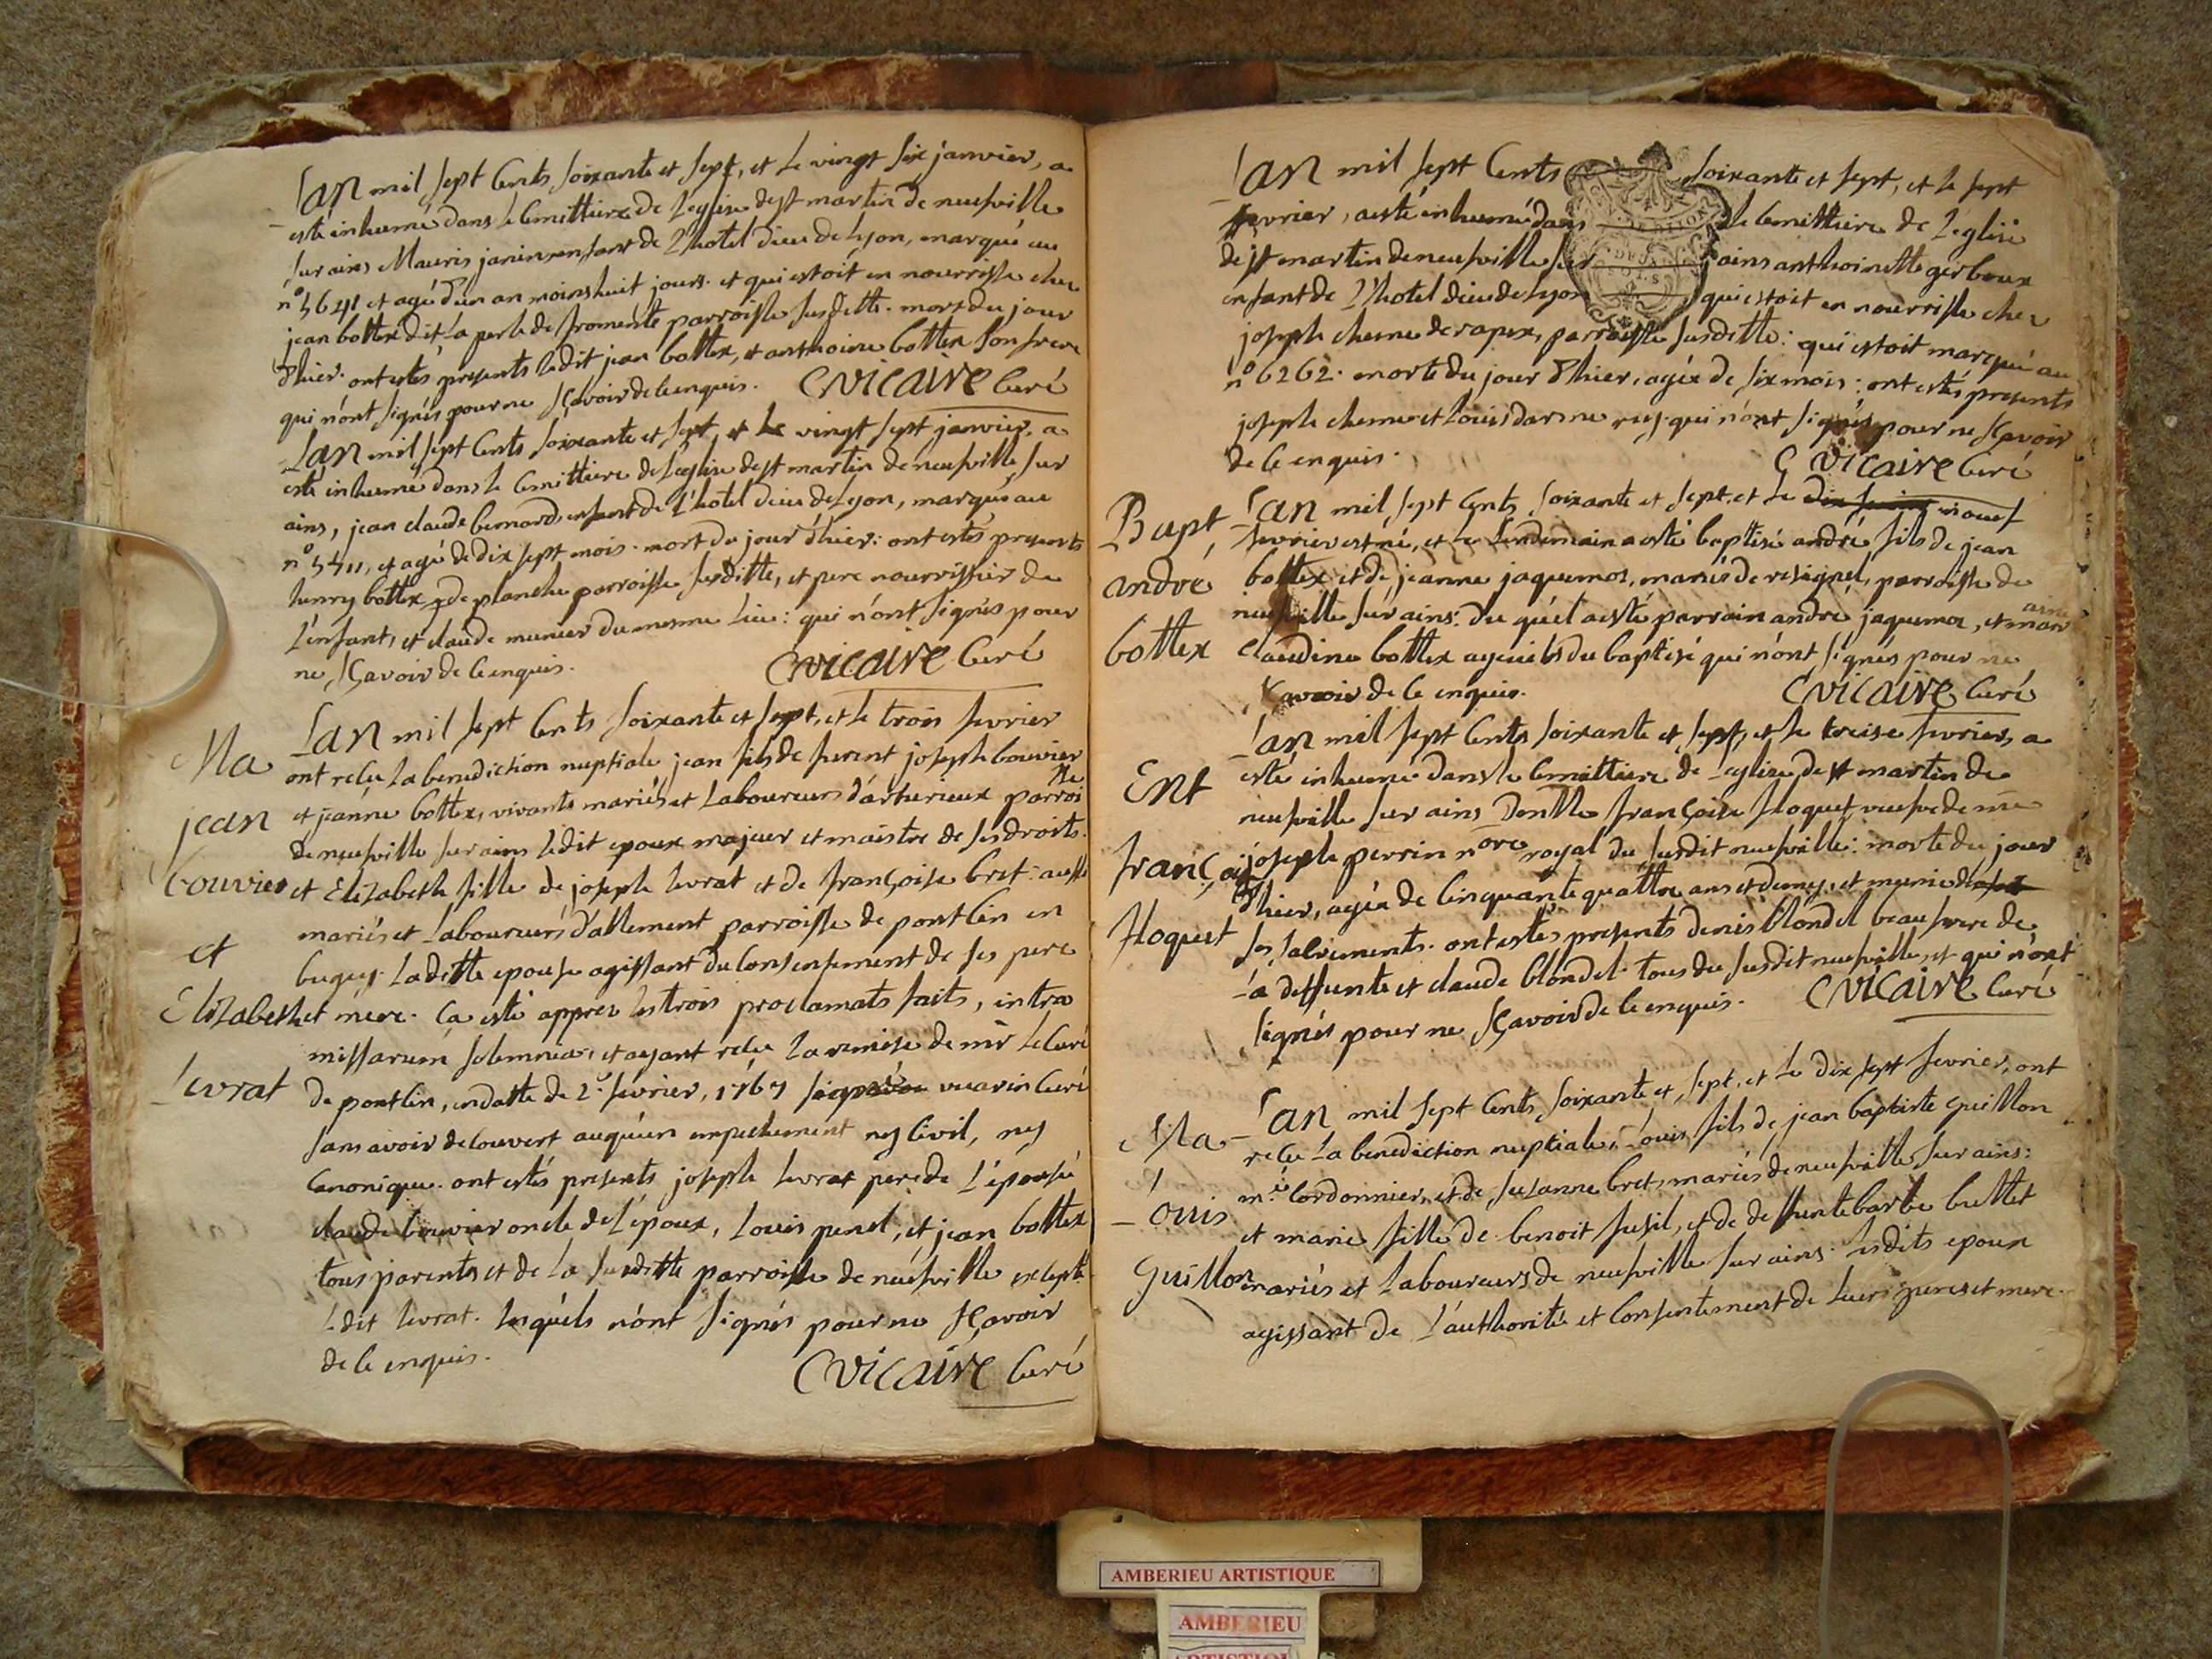 Lan mil sept Cents soixante et sept, et le vingt six janvier, a
esté inhumé dans le Cemittiere de Leglise de st martin de neufville
sur ains Mauris janin enfant de L'hotel dieu de Lyon, marqué au
n° 5641 et agé d'un an moins huit jours. et qui estoit en nourrisse chez
jean bottex dit La perle de fromente parroisse susditte. mort du jour
d'hier. ont estés presents ledit jean bottex, et anthoine bottex son frere
qui n'ont signés pour ne sçavoir de ce enquis. C VICAIRE Curé
Lan mil sept Cents soixante et sept, et Le vingt sept janvier, a
esté inhumé dans le Cemittiere de Leglise de st martin de neufville sur
ains, jean claude bernard enfant de L'hotel dieu de Lyon, marqué au
n° 5411, et agé de dix sept mois. mort du jour d'hier: ont estés presents
henry bottex de planche parroisse susditte, et pere nourrissier de
L'enfant, et claude munier du mesme lieu: qui n'ont signés pour
ne sçavoir de ce enquis. C VICAIRE Curé
Ma
jean
bouvier
et
Elizabeth
Levrat
Lan mil sept Cents soixante et sept, et le trois fevrier
ont reçu La benediction nuptiale jean fils de furent joseph bouvier
et jeanne bottex, vivants mariés et Laboureurs d'arturieux parroisse
de neufville sur ains ledit epoux majeur et maistre de ses droits.
et Elizabeth fille de joseph levrat et de françoise bret: aussi
mariés et Laboureurs d'allement parroisse de pontlin en
bugey. Laditte epouse agissant du Consentement de ses pere
et mere. Ca esté apprez les trois proclamats faits, intra
missarum solemnia, et ayant reçu La remise de mr Le Curé
de pontlin, en datte de 2e fevrier, 1767 signée vuarin Curé
sans avoir decouvert auqu'un empechement ny Civil, ny
Canonique. ont estés presents joseph levrat pere de L'épouse
claude bouvier oncle de L'époux, Louis penel, et jean bottex
tous parents et de La susditte parroisse de neufville excepté
Ledit levrat. lesquels n'ont signés pour ne sçavoir
de ce enquis. C VICAIRE Curé
Lan mil sept Cents soixante et sept, et le sept
fevrier, a esté inhumé dans le Cemittiere de Leglise
de st martin de neufville sur ains anthoinette gerboux
enfant de L'hotel dieu de Lyon qui estoit en nourrisse chez
joseph chesne de rapex, parroisse susditte: qui estoit marqué au
n° 6262. morte du jour d'hier, agée de six mois: ont estés presents
joseph chesne et Louis darsne qui n'ont signés pour ne sçavoir
de ce enquis. C VICAIRE Curé
Bapt
andre
bottex
Lan mil sept Cents soixante et sept, et Le neuf
fevrier est né, et Le Lendemain a esté baptisé andré fils de jean
bottex et de jeanne jaquemos, mariés de resignel, parroisse de
neufville sur ains. du quel a esté parrain andré jaquemos, et marraine
claudine bottex ayeuils du baptisé qui n'ont signés pour ne
sçavoir de ce enquis. C VICAIRE Curé
Ent
françoise
floquet
Lan mil sept Cents soixante et sept, et le treise fevrier, a
esté inhumé dans le Cemittiere de Leglise de st martin de
neufville sur ains Dentlle françoise floquet veufve de me
joseph perrin nore royal du susdit neufville: morte du jour
d'hier, agée de Cinquante quattre ans et demy, et munie de
ses sacrements. ont estés presents denis blondel beau frere de
La deffunte et claude blondel. tous du susdit neufville, et qui n'ont
signés pour ne sçavoir de ce enquis. C VICAIRE Curé
Ma
Louis
Guillon
Lan mil sept Cents soixante et sept, et Le dix sept fevrier, ont
reçu La benediction nuptiale, Louis fils de jean baptiste guillon
me Cordonnier, et de suzanne bret, mariés de neufville sur ains:
et marie fille de benoit fusil, et de deffunte barbe bullet
mariés et Laboureurs de neufville sur ains. lesdits epoux
agissant de L'authorité et Consentement de Leurs peres et mere.
AMBERIEU ARTISTIQUE
AMBERIEU
ARTISTIQUE